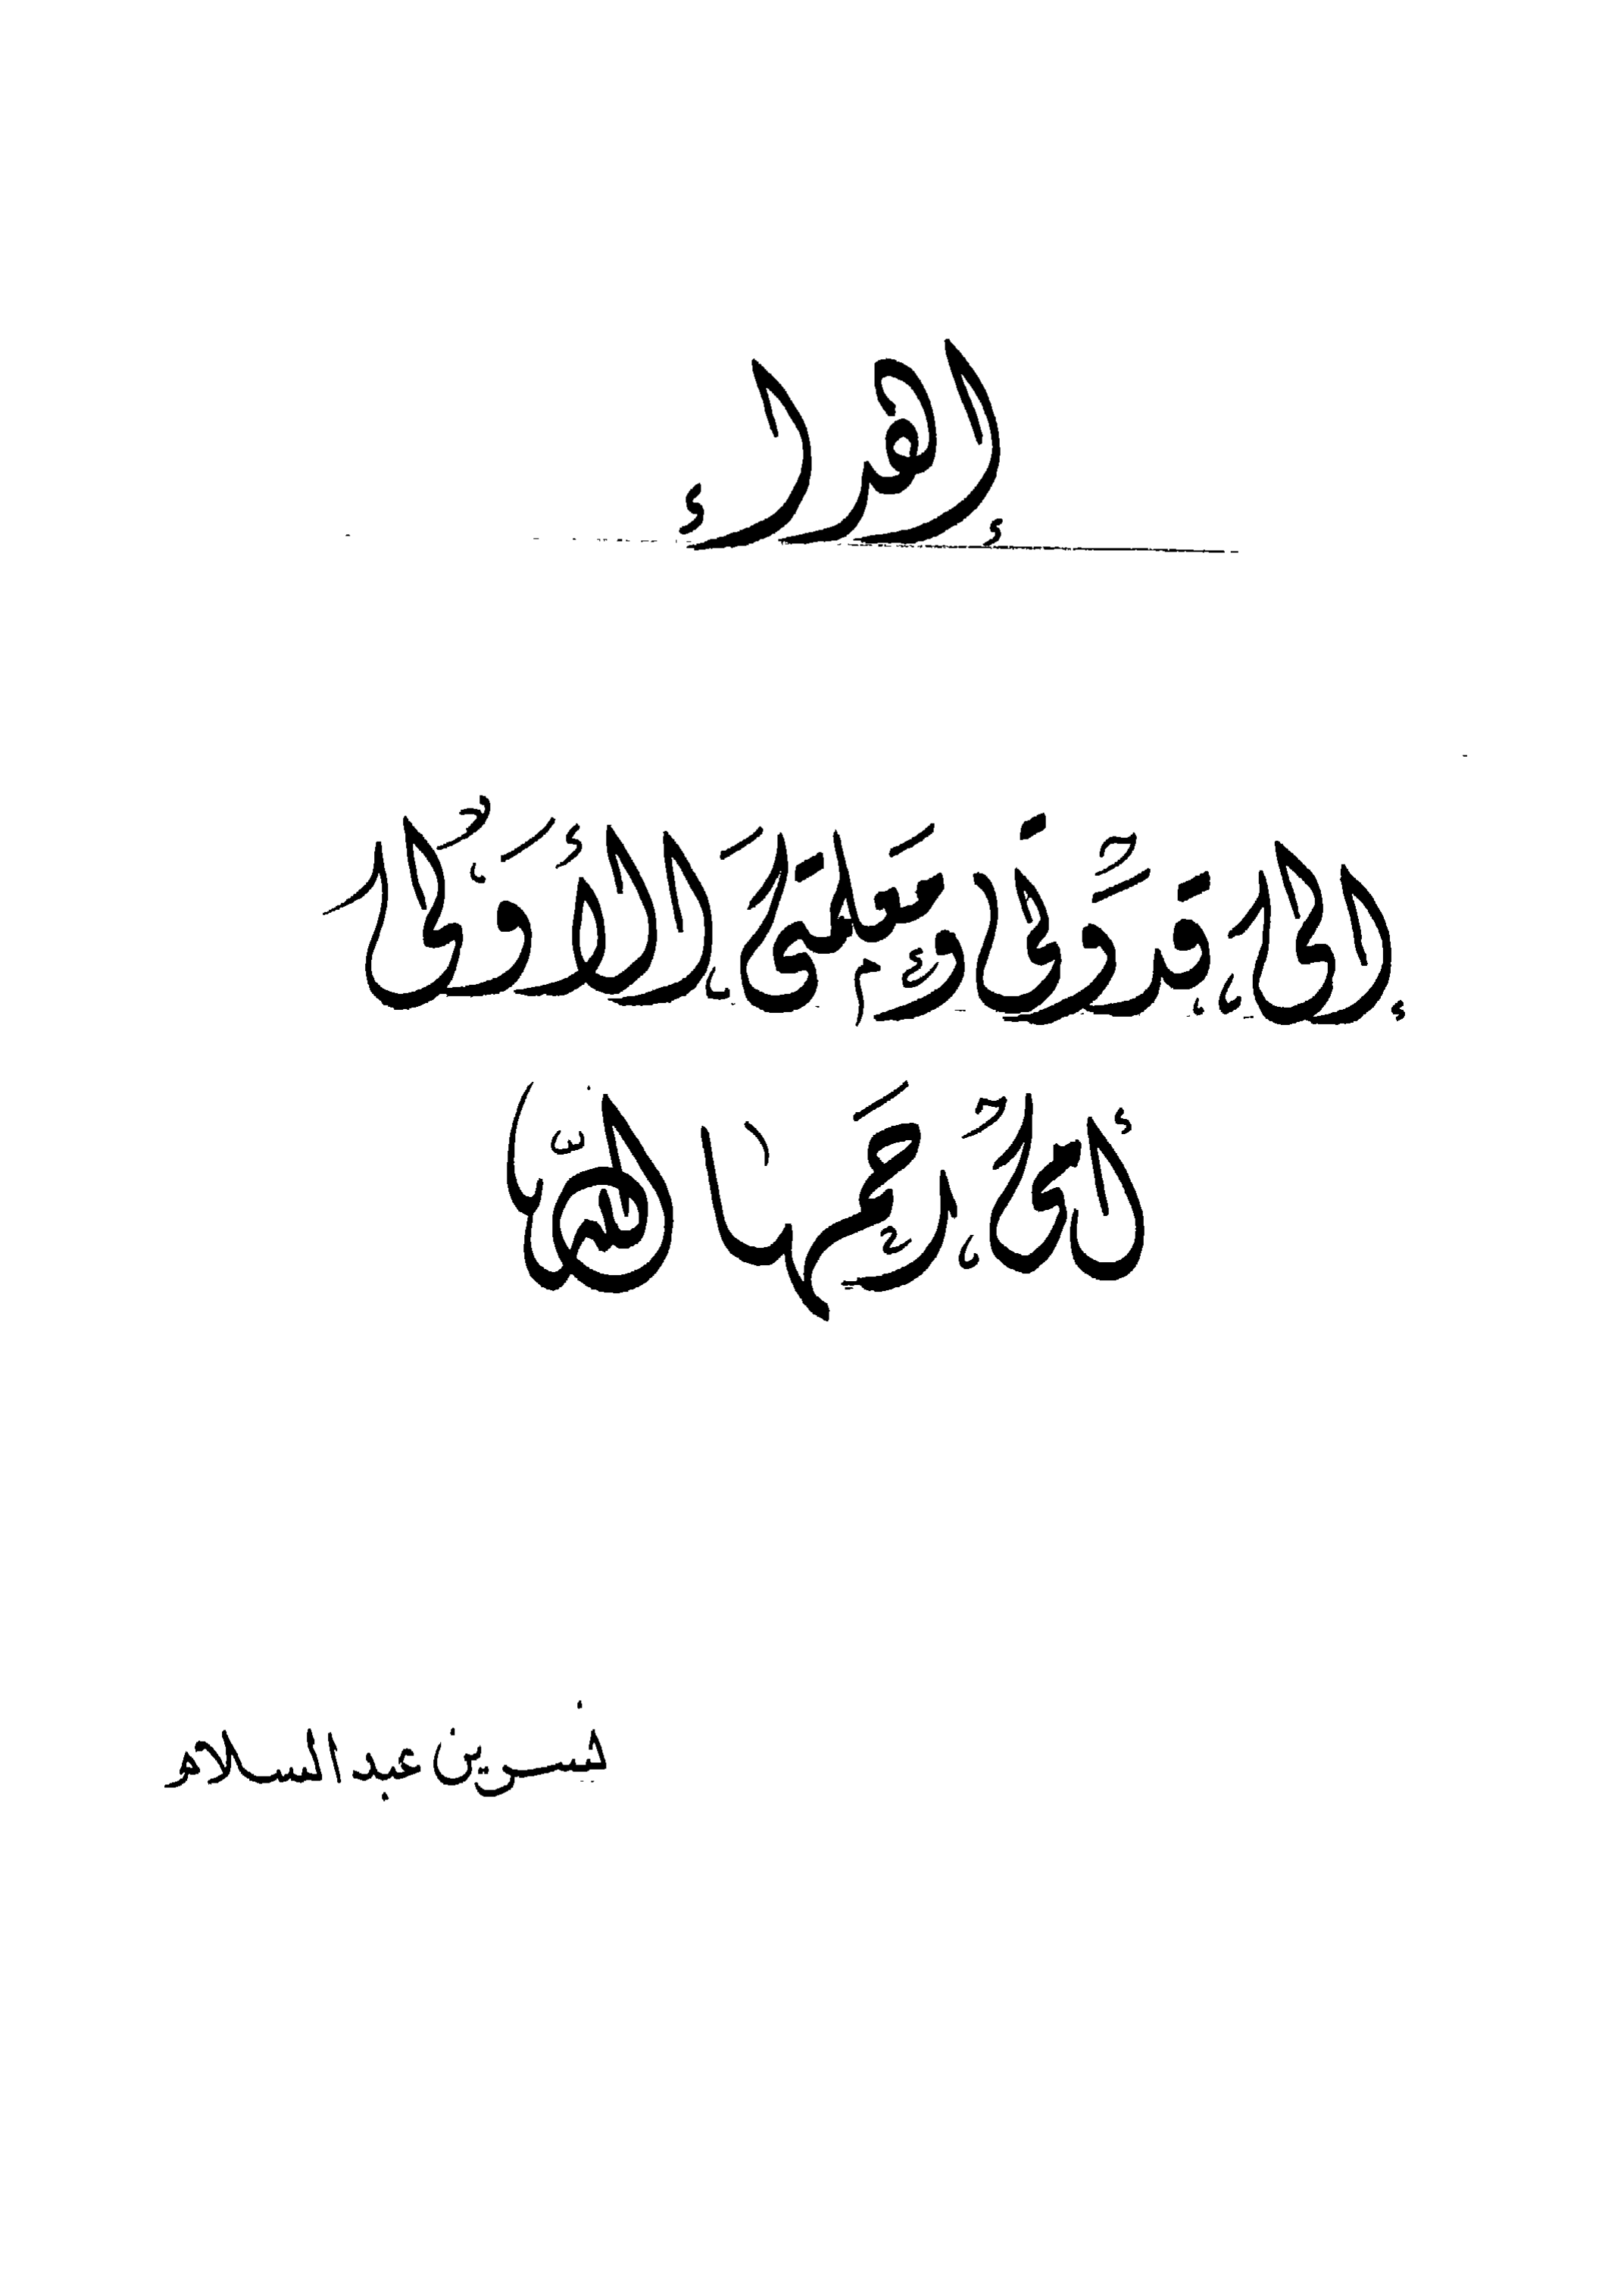 إهداء
إلى قدوتي ومعلمتي الأولى
أمي رحمها الله
نسرين عبد السلام